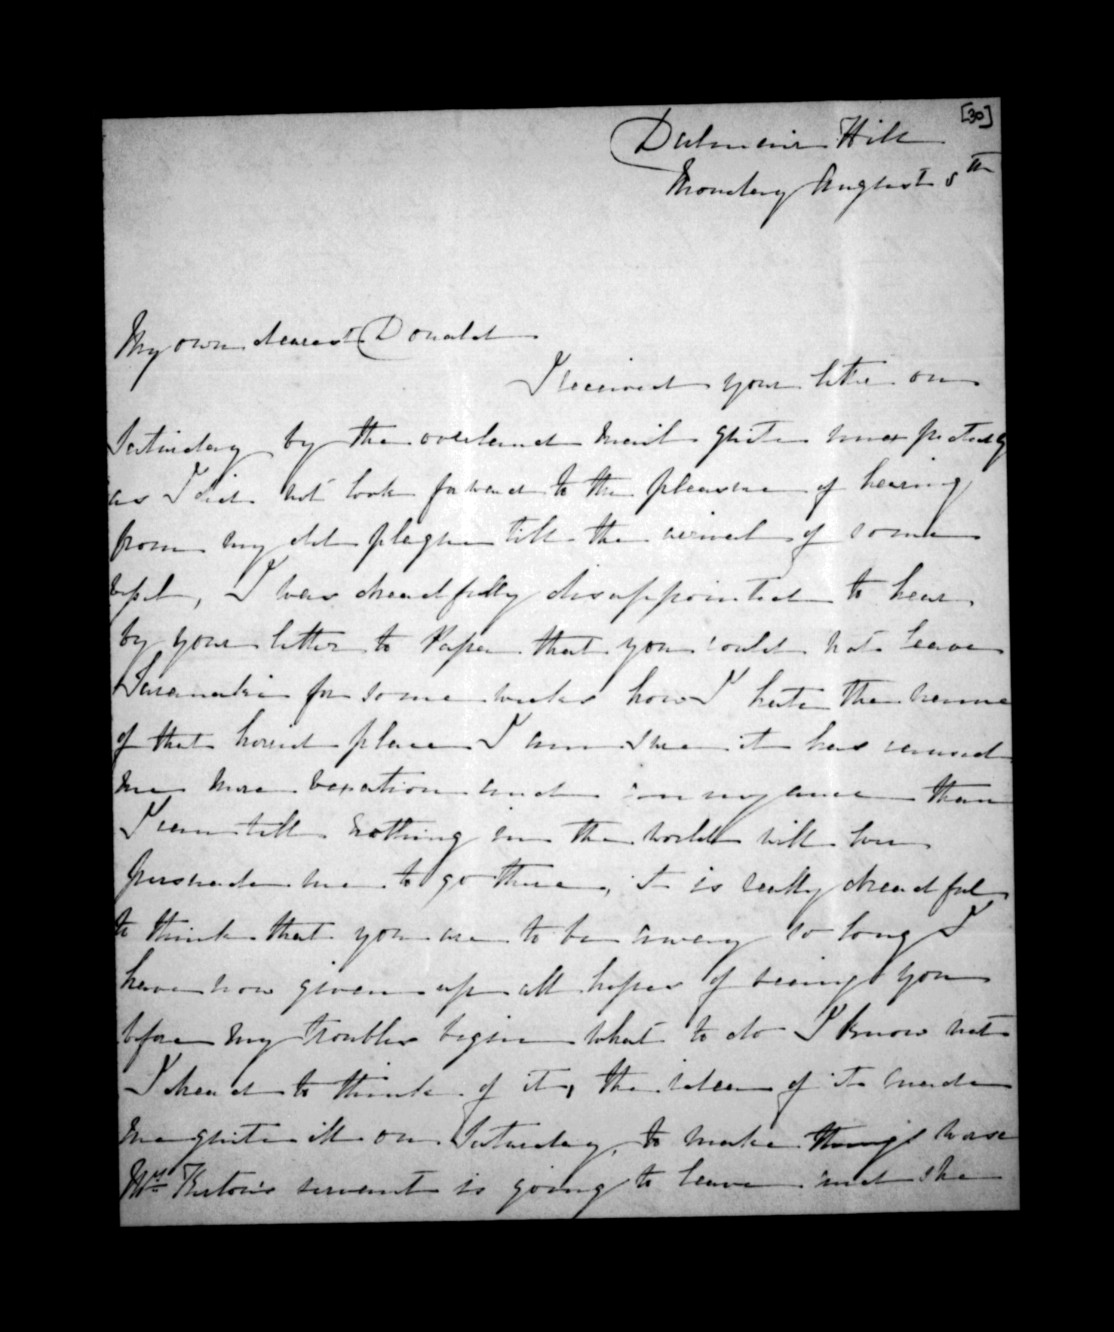 [30]
Dalmuir Hill
Monday August 5th
My own dearest Donald
I received your letter on
Saturday by the overland mail quite unexpectedly
as I did not look forward to the pleasure of hearing
from my old plague till the arrival of some
vessel, I was dreadfully disappointed to hear
by your letter to Papa that you could not leave
Taranaki for some weeks how I hate the name
of that horrid place I am sure it has caused
me more vexation and annoyance than
I can tell nothing in the world will ever
persuade me to go there, it is really dreadful
to think that you are to be away so long I
have now given up all hopes of seeing you
before my troubles begin what to do I know not
I dread to think of it, the idea of it made
me quite ill on Saturday, to make things worse
Mrs servant is going to leave and she